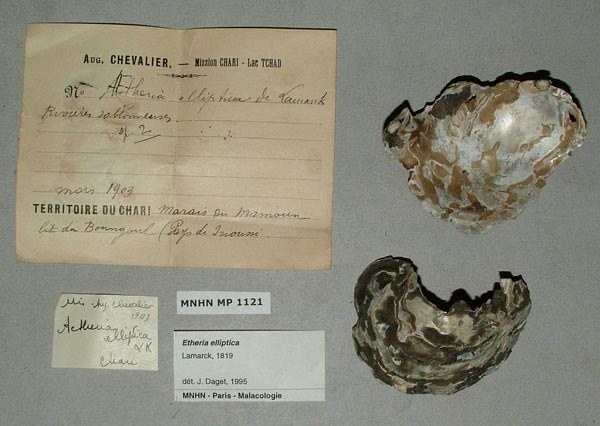 AUG. CHEVALIER. — Mission CHARI - Lac TCHAD
No Ætheria elliptica de Lamarck
Rivières sablonneuses
mars 1903
TERRITOIRE DU CHARI Marais du Mamoun
lit du (Pays de Snoussi
Mis Aug. Chevalier
1903
Aetheria
elliptica
LK
Chari
MNHN MP 1121
Etheria elliptica
Lamarck, 1819
dét. J. Daget, 1995
MNHN - Paris - Malacologie